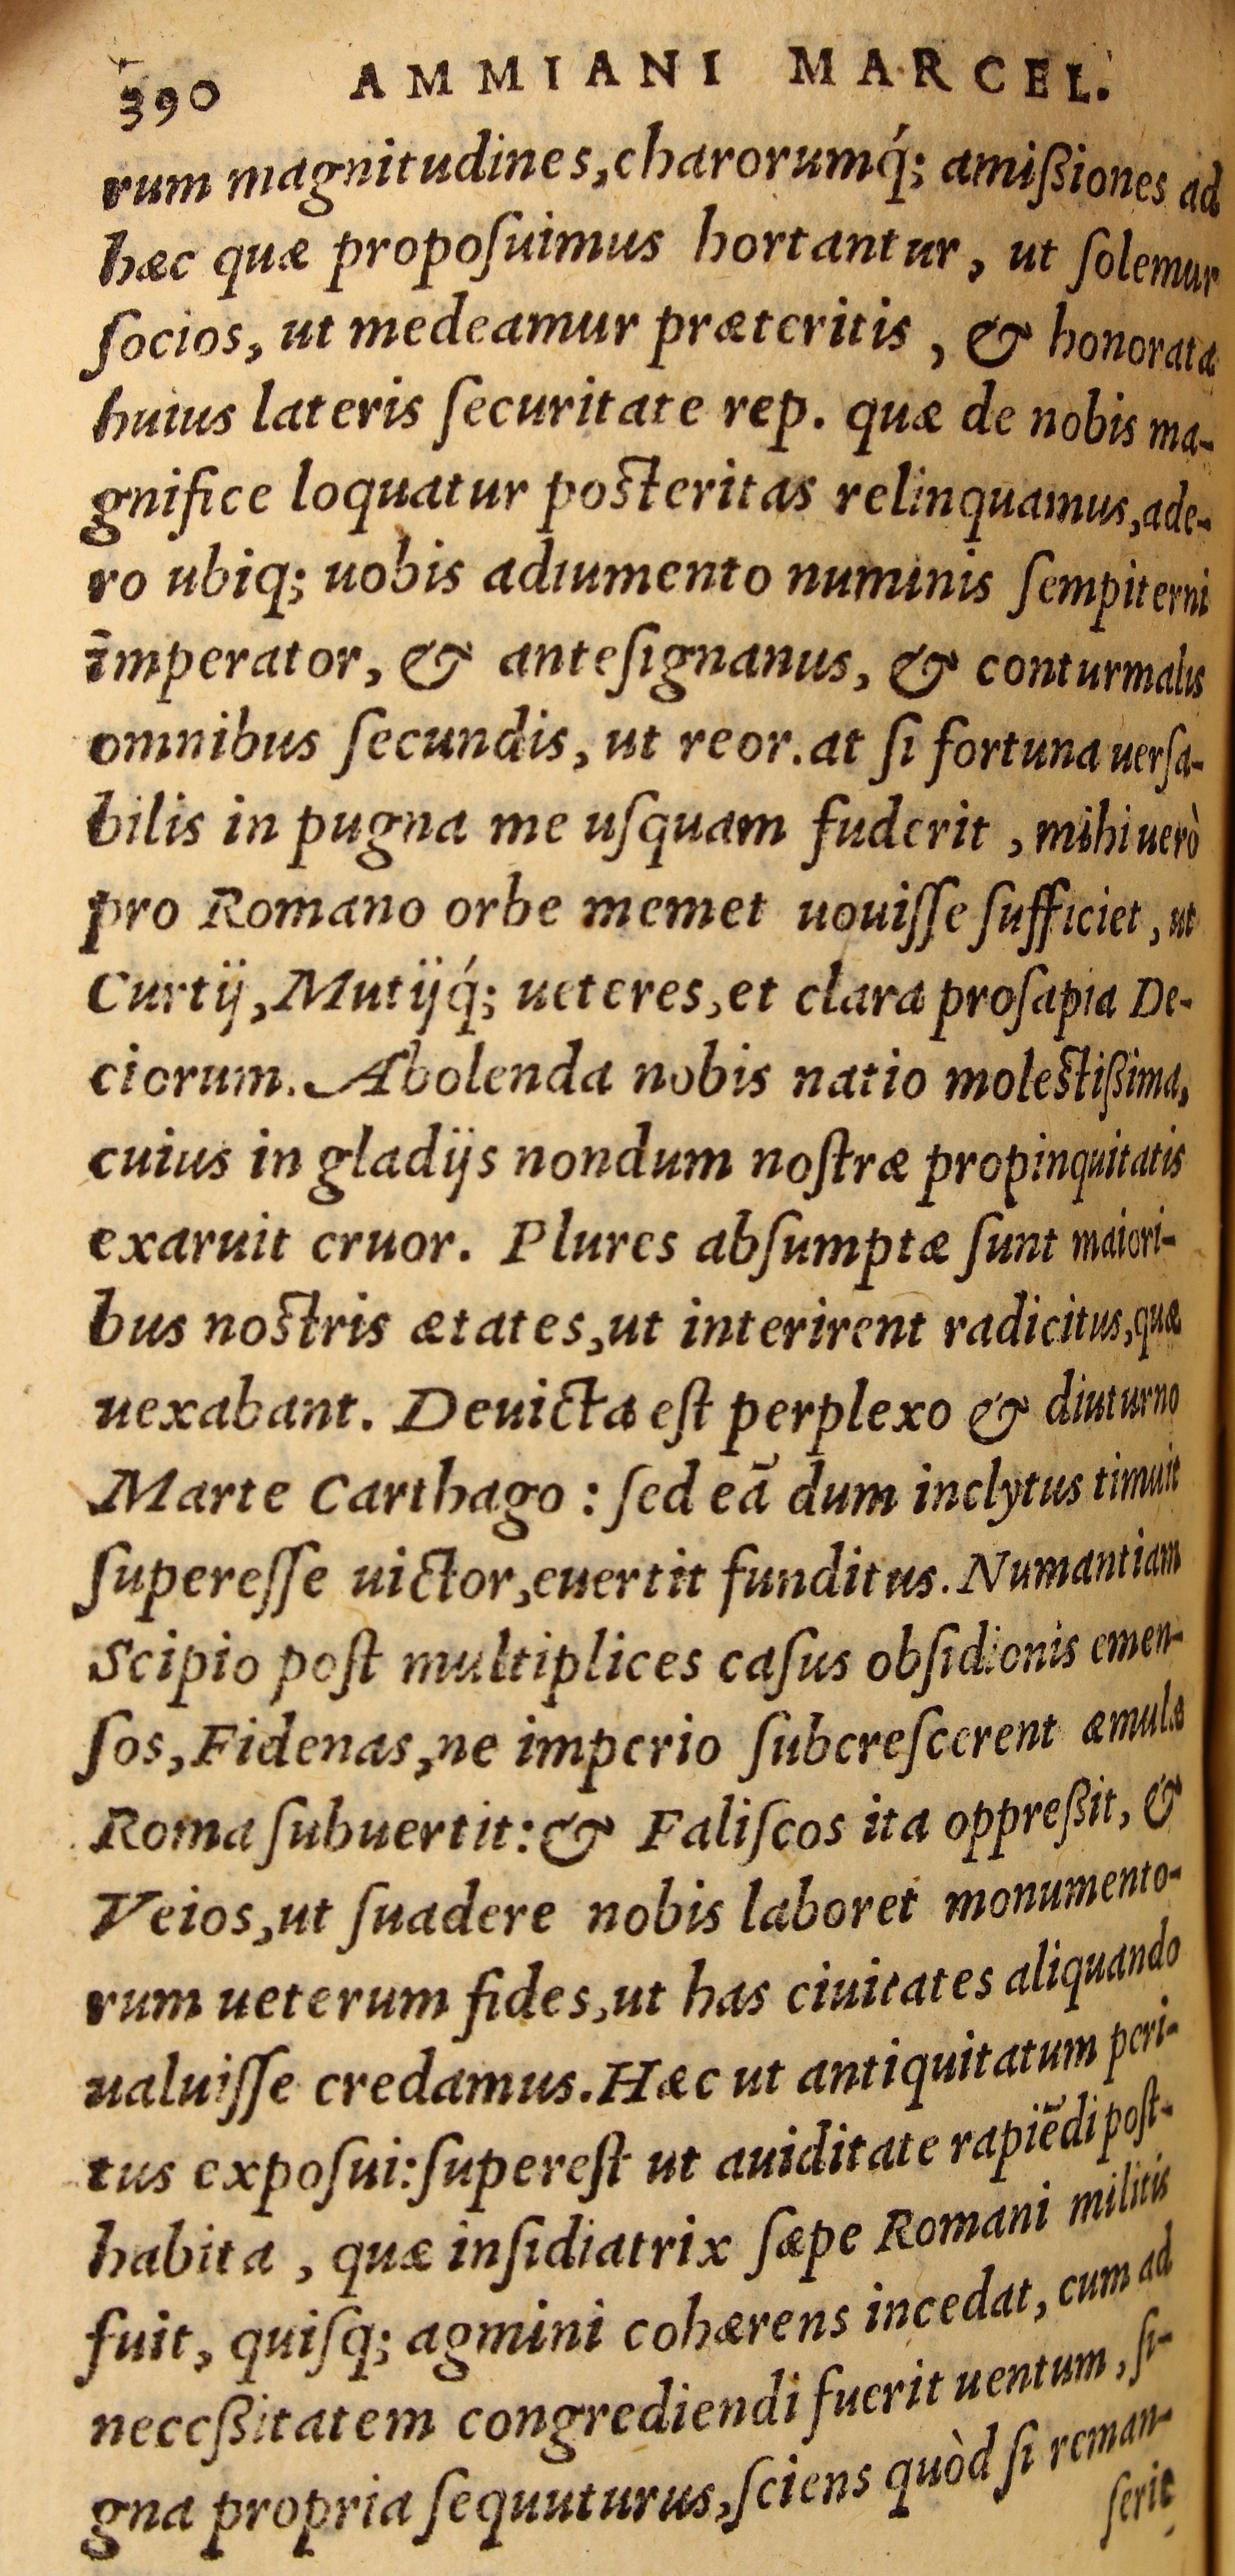 390 AMMIANI MARCEL.
rum magnitudines, charorumq́; amißiones ad
hæc quæ propoſuimus hortantur, ut ſolemur
ſocios, ut medeamur præteritis, & honorata
huius lateris ſecuritate rep. quæ de nobis ma-
gnifice loquatur poſteritas relinquamus, ade-
ro ubiq; uobis adiumento numinis ſempiterni
imperator, & anteſignanus, & conturmalis
omnibus ſecundis, ut reor. at ſi fortuna uerſa-
bilis in pugna me uſquam fuderit, mihi uerò
pro Romano orbe memet uouiſſe ſufficiet, ut
Curtij, Mutijq́; ueteres, et clara proſapia De-
ciorum. Abolenda nobis natio moleſtißima,
cuius in gladijs nondum noſtræ propinquitatis
exaruit cruor. Plures abſumptæ ſunt maiori-
bus noſtris ætates, ut interirent radicitus, quæ
uexabant. Deuicta eſt perplexo & diuturno
Marte Carthago: ſed eā dum inclytus timuit
ſupereſſe uictor, euertit funditus. Numantiam
Scipio poſt multiplices caſus obſidionis emen-
ſos, Fidenas, ne imperio ſubcreſcerent æmulæ
Roma ſubuertit: & Faliſcos ita oppreßit, &
Veios, ut ſuadere nobis laboret monumento-
rum ueterum fides, ut has ciuitates aliquando
ualuiſſe credamus. Hæc ut antiquitatum peri-
tus expoſui: ſupereſt ut auiditate rapiēdi poſt-
habita, quæ inſidiatrix ſæpe Romani militis
fuit, quiſq; agmini cohærens incedat, cum ad
neceßitatem congrediendi fuerit uentum, ſi-
gna propria ſequuturus, ſciens quòd ſi reman-
ſerit